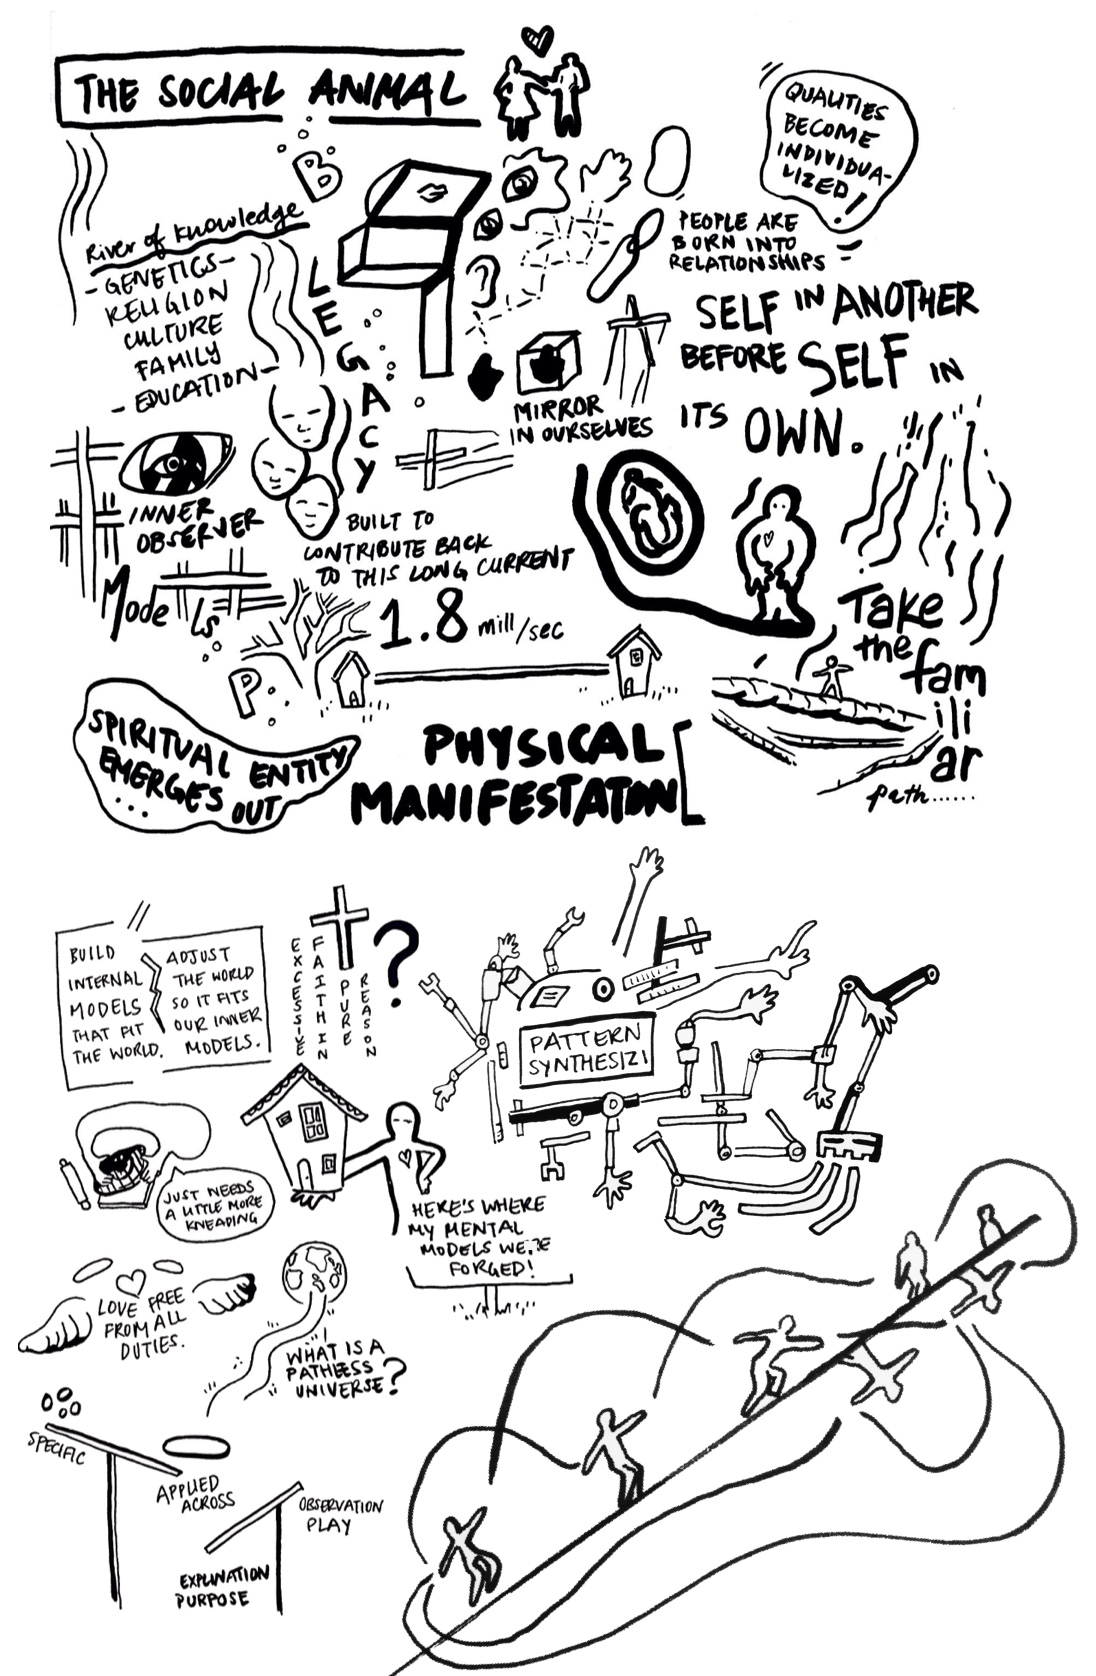 THE SOCIAL ANIMAL
QUALITIES
BECOME
INDIVIDUA-
LIZED!
B
River of Knowledge
- GENETICS -
RELIGION
CULTURE
FAMILY
- EDUCATION -
LEGACY
PEOPLE ARE
BORN INTO
RELATIONSHIPS
SELF IN ANOTHER
BEFORE SELF IN
ITS OWN.
MIRROR
IN OURSELVES
INNER
OBSERVER
Models
BUILT TO
CONTRIBUTE BACK
TO THIS LONG CURRENT
1.8 mill/sec
P
Take
the fam
ili
ar
path......
SPIRITUAL ENTITY
EMERGES OUT
...
PHYSICAL
MANIFESTATON
BUILD
INTERNAL
MODELS
THAT FIT
THE WORLD.
ADJUST
THE WORLD
SO IT FITS
OUR INNER
MODELS.
EXCESSIVE
FAITH IN
PURE
REASON
?
PATTERN
SYNTHESIZI
JUST NEEDS
A LITTLE MORE
KNEADING
HERE'S WHERE
MY MENTAL
MODELS WERE
FORGED!
LOVE FREE
FROM ALL
DUTIES.
WHAT IS A
PATHLESS
UNIVERSE?
SPECIFIC
APPLIED
ACROSS
OBSERVATION
PLAY
EXPLINATION
PURPOSE